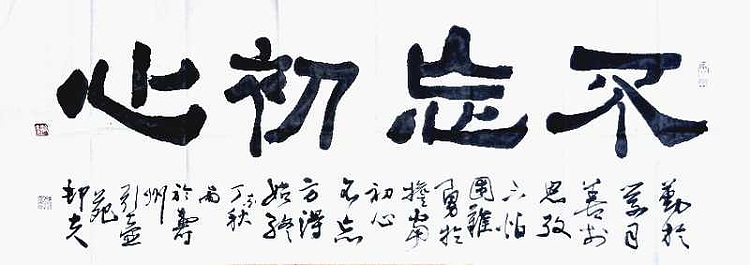 不忘初心
勤於
學習
善於
思攷
不怕
困難
勇於
擔當
初心
不忘
方得
始終
丁酉秋
於壽
州
苑